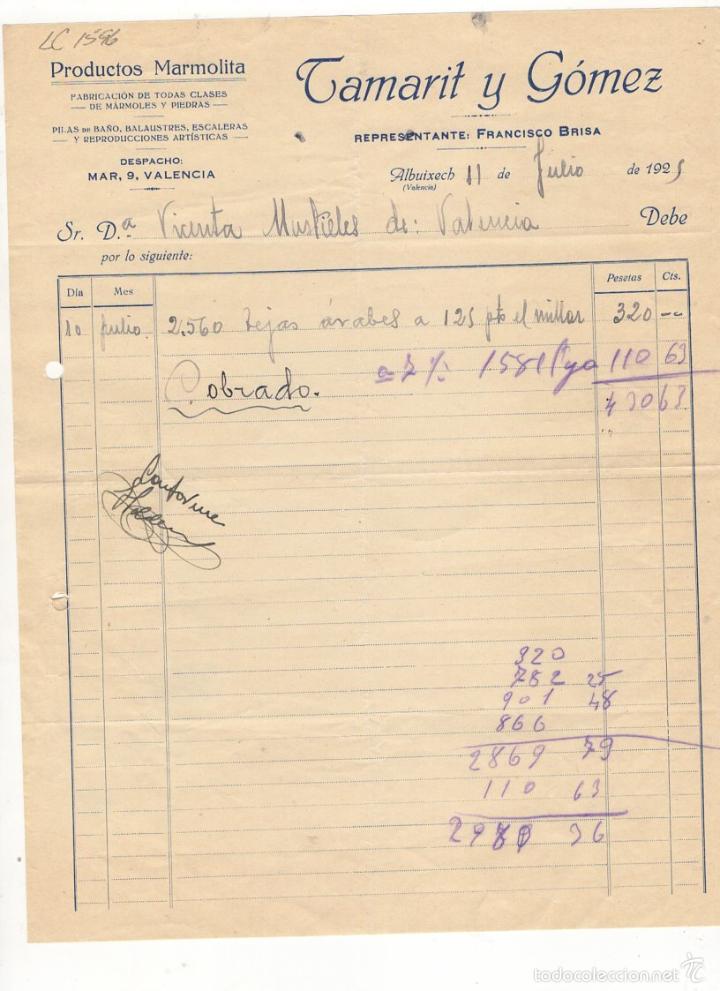 LC 1596
Productos Marmolita
FABRICACIÓN DE TODAS CLASES
DE MÁRMOLES Y PIEDRAS
PILAS DE BAÑO, BALAUSTRES, ESCALERAS
Y REPRODUCCIONES ARTÍSTICAS
DESPACHO:
MAR, 9, VALENCIA
Tamarit y Gómez
REPRESENTANTE: FRANCISCO BRISA
Albuixech 11 de Julio de 1925
(Valencia)
Sr. D.ª Vicenta Mustieles de: Valencia Debe
por lo siguiente:
Día Mes Pesetas Cts.
10 Julio. 2.560 tejas árabes a 125 pts el millar 320 --
a 7 % 1581 110 63
Cobrado. 430 63
Conforme
320
782 25
901 48
866
2869 79
110 63
36
todocoleccion.net